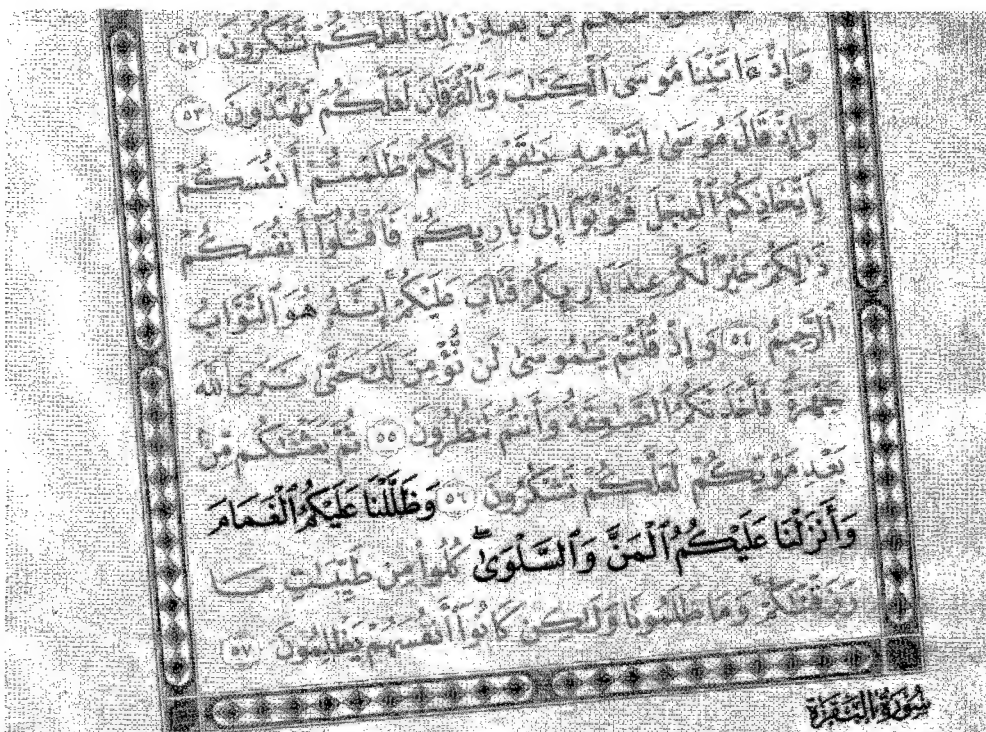 عَنكُم مِّنۢ بَعْدِ ذَٰلِكَ لَعَلَّكُمْ تَشْكُرُونَ ٥٢
وَإِذْ ءَاتَيْنَا مُوسَى ٱلْكِتَٰبَ وَٱلْفُرْقَانَ لَعَلَّكُمْ تَهْتَدُونَ ٥٣
وَإِذْ قَالَ مُوسَىٰ لِقَوْمِهِۦ يَٰقَوْمِ إِنَّكُمْ ظَلَمْتُمْ أَنفُسَكُم
بِٱتِّخَاذِكُمُ ٱلْعِجْلَ فَتُوبُوٓا۟ إِلَىٰ بَارِئِكُمْ فَٱقْتُلُوٓا۟ أَنفُسَكُمْ
ذَٰلِكُمْ خَيْرٌ لَّكُمْ عِندَ بَارِئِكُمْ فَتَابَ عَلَيْكُمْ إِنَّهُۥ هُوَ ٱلتَّوَّابُ
ٱلرَّحِيمُ ٥٤ وَإِذْ قُلْتُمْ يَٰمُوسَىٰ لَن نُّؤْمِنَ لَكَ حَتَّىٰ نَرَى ٱللَّهَ
جَهْرَةً فَأَخَذَتْكُمُ ٱلصَّٰعِقَةُ وَأَنتُمْ تَنظُرُونَ ٥٥ ثُمَّ بَعَثْنَٰكُم مِّنۢ
بَعْدِ مَوْتِكُمْ لَعَلَّكُمْ تَشْكُرُونَ ٥٦ وَظَلَّلْنَا عَلَيْكُمُ ٱلْغَمَامَ
وَأَنزَلْنَا عَلَيْكُمُ ٱلْمَنَّ وَٱلسَّلْوَىٰۖ كُلُوا۟ مِن طَيِّبَٰتِ مَا
رَزَقْنَٰكُمْۖ وَمَا ظَلَمُونَا وَلَٰكِن كَانُوٓا۟ أَنفُسَهُمْ يَظْلِمُونَ ٥٧
سُورَةُ البَقَرَة